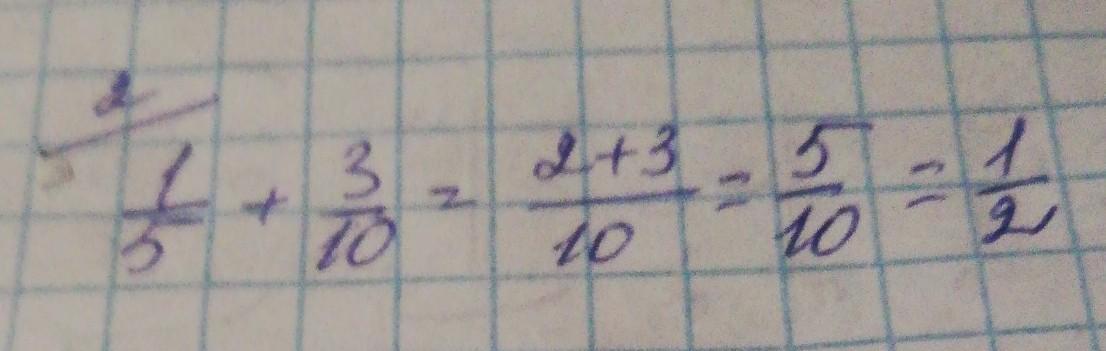 2
1/5 + 3/10 = 2+3/10 = 5/10 = 1/2